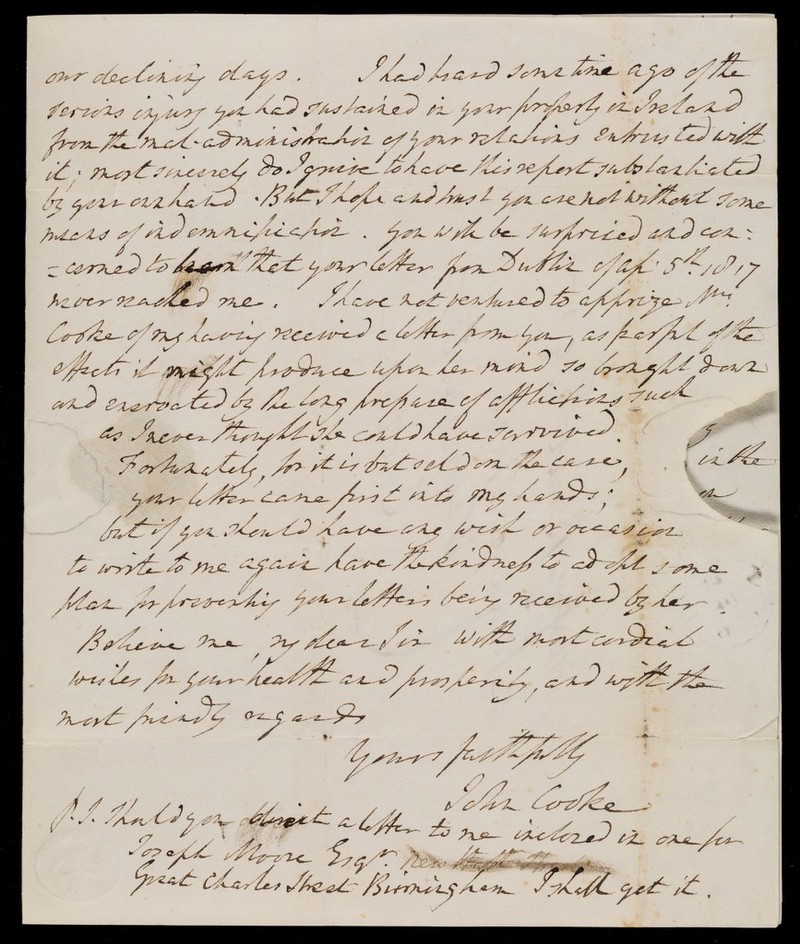 our declining days. I had heard some time ago of the
serious injury you had sustained in your property in Ireland
from the mal-administration of your relations entrusted with
it; most sincerely do I grieve to have this report substantiated
by your own hand. But I hope and trust you are not without some
means of indemnification. You will be surprized and con-
-cerned to learn that your letter from Dublin of Ap: 5th. 1817
never reached me. I have not ventured to apprize Mrs.
Cooke of my having received a letter from you, as fearful of the
effects it might produce upon her mind so brought down
and enervated by the long pressure of afflictions such
as I never thought she could have survived.
Fortunately, for it is but seldom the case,
your letter came first into my hands;
but if you should have any wish or occasion
to write to me again have the kindness to adopt some
plan for preventing your letters being received by her.
Believe me, my dear Sir with most cordial
wishes for your health and prosperity, and with the
most friendly regards
Yours faithfully
John Cooke
P.S. Should you direct a letter to me inclosed in one for
Joseph Moore Esqr.
Great Charles Street Birmingham I shall get it.
in the